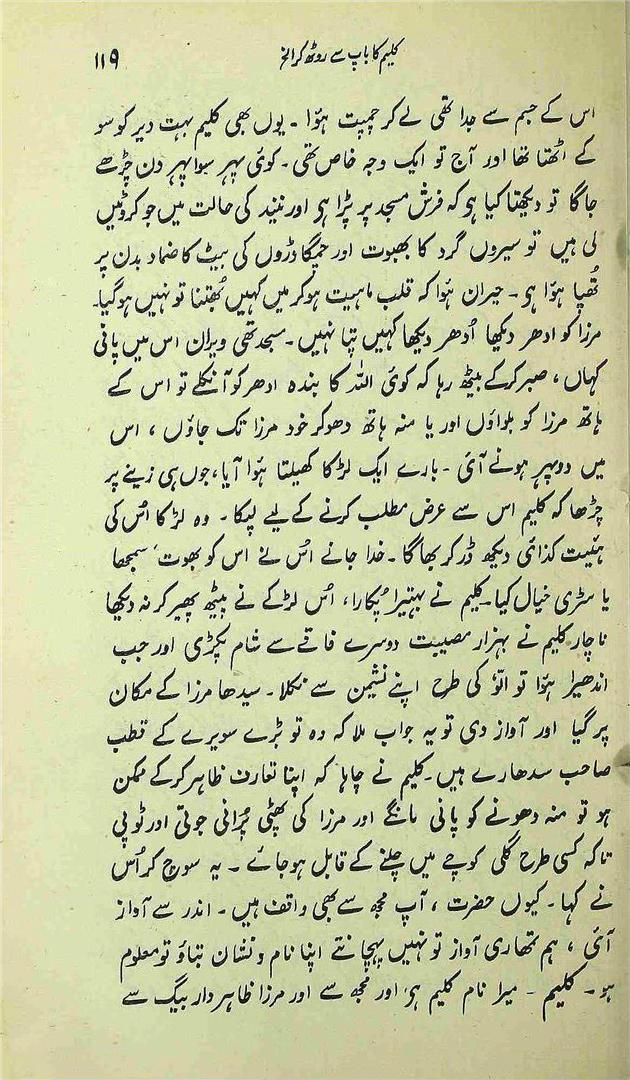 کلیم کا باپ سے روٹھ کر الخ ۱۱۹
اس کے جسم سے جدا تھی لے کر چمپت ہوُا ۔ یوں بھی کلیم بہت دیر کو سو
کے اُٹھتا تھا اور آج تو ایک وجہ خاص تھی ۔ کوئی پہر سوا پہر دن چڑھے
جاگا تو دیکھتا کیا ہی کہ فرش مسجد پر پڑا ہی اور نیند کی حالت میں جو کروٹیں
لی ہیں تو سیروں گرد کا بھبوت اور چمگادڑوں کی بیٹ کا ضماد بدن پر
تُھپا ہوُا ہی ۔ حیران ہوُا کہ قلب ماہیت ہو کر میں کہیں بُھتنا تو نہیں ہوگیا۔
مرزا کو ادھر دیکھا اُدھر دیکھا کہیں پتا نہیں ۔ مسجد تھی ویران اس میں پانی
کہاں ، صبر کر کے بیٹھ رہا کہ کوئی اللہ کا بندہ ادھر کو آنکلے تو اس کے
ہاتھ مرزا کو بلواؤں اور یا منہ ہاتھ دھو کر خود مرزا تک جاؤں ، اس
میں دوپہر ہونے آئی ۔ بارے ایک لڑکا کھیلتا ہوُا آیا ، جوں ہی زینے پر
چڑھا کہ کلیم اس سے عرض مطلب کرنے کے لیے لپکا ۔ وہ لڑکا اُس کی
ہیئت کذائی دیکھ ڈر کر بھاگا ۔ خدا جانے اُس نے اس کو بھوت سمجھا
یا سڑی خیال کیا ۔ کلیم نے بہتیرا پُکارا ، اُس لڑکے نے پیٹھ پھیر کر نہ دیکھا
ناچار کلیم نے بہزار مصیبت دوسرے فاقے سے شام پکڑی اور جب
اندھیرا ہوُا تو الّو کی طرح اپنے نشیمن سے نکلا ۔ سیدھا مرزا کے مکان
پر گیا اور آواز دی تو یہ جواب ملا کہ وہ تو بڑے سویرے کے قطب
صاحب سدھارے ہیں ۔ کلیم نے چاہا کہ اپنا تعارف ظاہر کر کے ممکن
ہو تو منہ دھونے کو پانی مانگے اور مرزا کی پھٹی پُرانی جوتی اور ٹوپی
تاکہ کسی طرح گلی کوچے میں چلنے کے قابل ہو جائے ۔ یہ سوچ کر اُس
نے کہا ۔ کیوں حضرت ، آپ مجھ سے بھی واقف ہیں ۔ اندر سے آواز
آئی ، ہم تمھاری آواز تو نہیں پہچانتے اپنا نام و نشان بتاؤ تو معلوم
ہو ۔ کلیم ۔ میرا نام کلیم ہی اور مجھ سے اور مرزا ظاہر دار بیگ سے